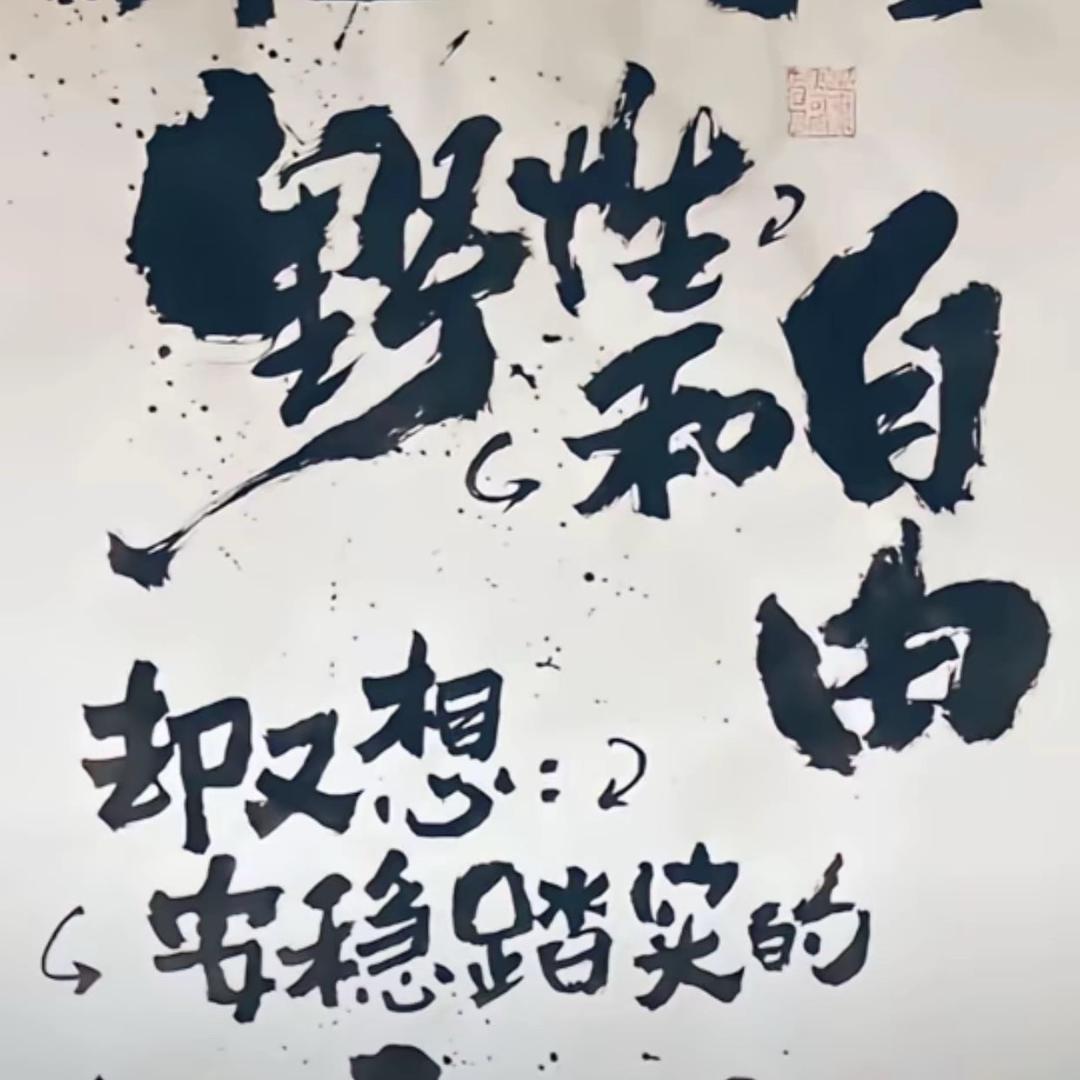 野性
和自由
却又想:
安稳踏实的